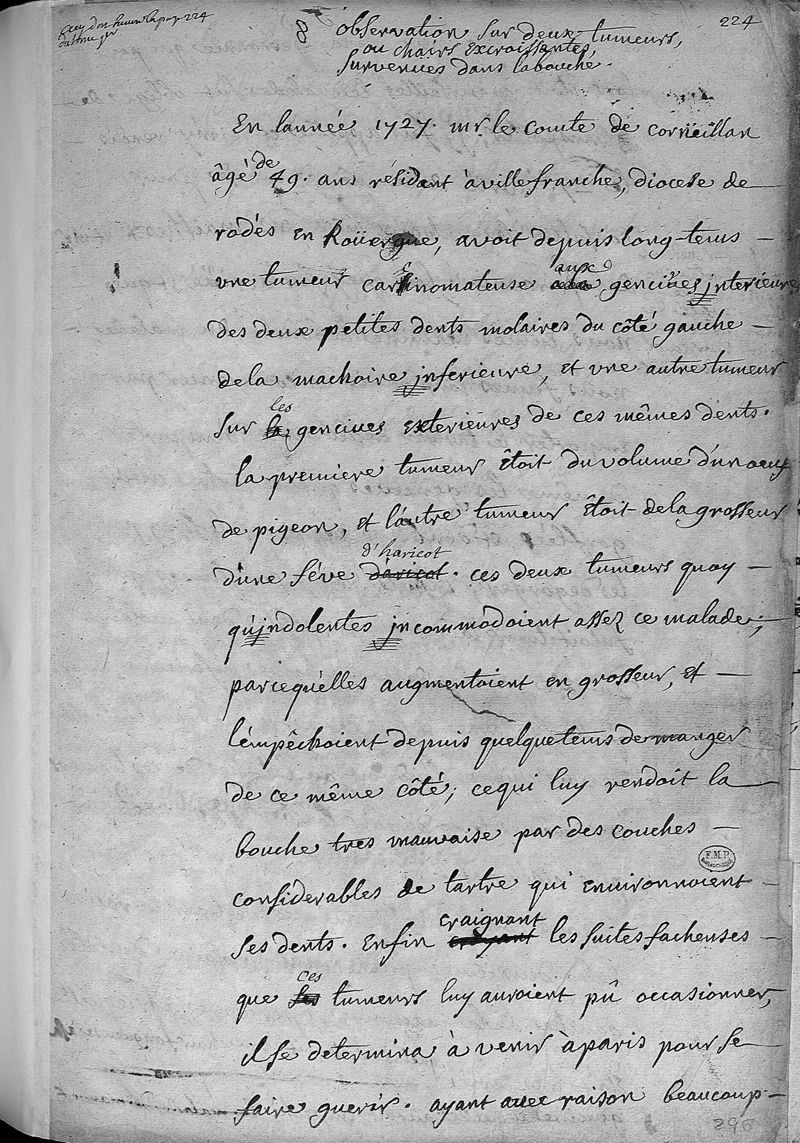 224
8 observation sur deux tumeurs,
ou chairs excroissantes,
survenües dans la bouche.
En lannée 1727. mr le comte de corneillan
âgé de 49. ans résidant à villefranche, diocese de
rodés en Roüergue, avoit depuis long-tems
vne tumeur carcinomateuse aux gencives jnterieures
des deux petites dents molaires du côté gauche
de la machoire jnferieure, et vne autre tumeur
sur les gencives exterieures de ces mêmes dents.
la premiere tumeur êtoit du volume d'un oeuf
de pigeon, et l'autre tumeur êtoit de la grosseur
d'une féve d'haricot. ces deux tumeurs quoy
qu'jndolentes jncommodoient assez ce malade;
parcequ'elles augmentoient en grosseur, et
l'empêchoient depuis quelque tems de manger
de ce même côté; ce qui luy rendoit la
bouche tres mauvaise par des couches
considerables de tartre qui environnoient
ses dents. Enfin craignant les suites facheuses
que ces tumeurs luy auroient pû occasionner,
il se determina à venir à paris pour se
faire guerir. ayant avec raison beaucoup
F.M.P.
296